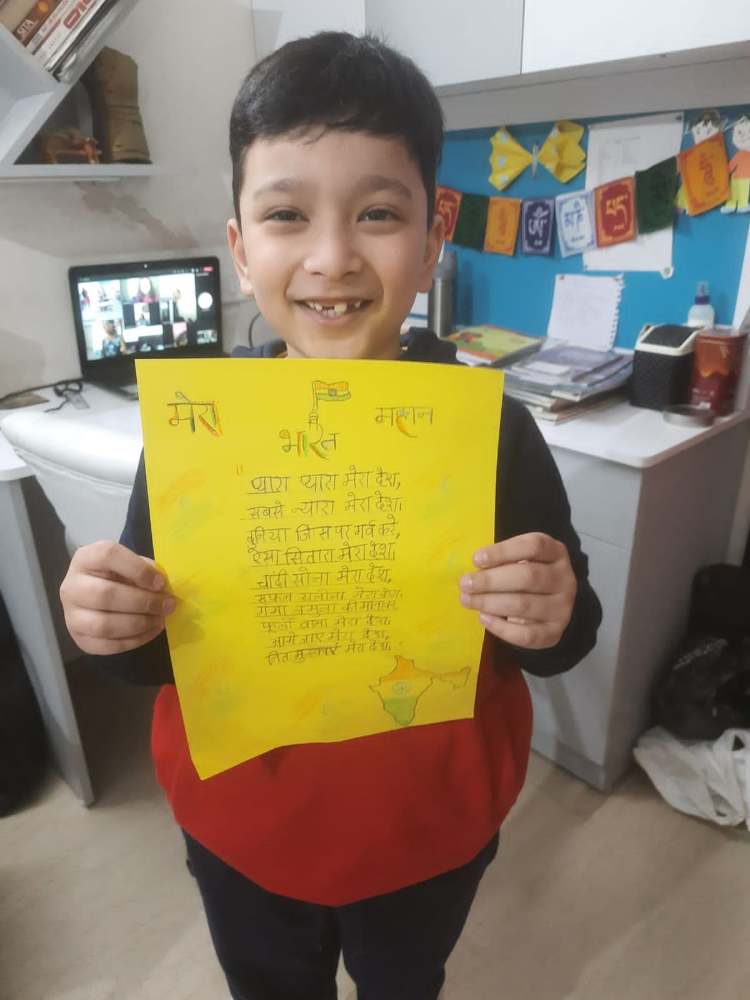 मेरा भारत महान
"प्यारा प्यारा मेरा देश,
सबसे न्यारा मेरा देश।
दुनिया जिस पर गर्व करे,
ऐसा सितारा मेरा देश।
चांदी सोना मेरा देश,
सफल सलोना मेरा देश।
गंगा जमुना की माला का
फूलों वाला मेरा देश।
आगे जाए मेरा देश,
नित मुस्काए मेरा देश।"
SITA